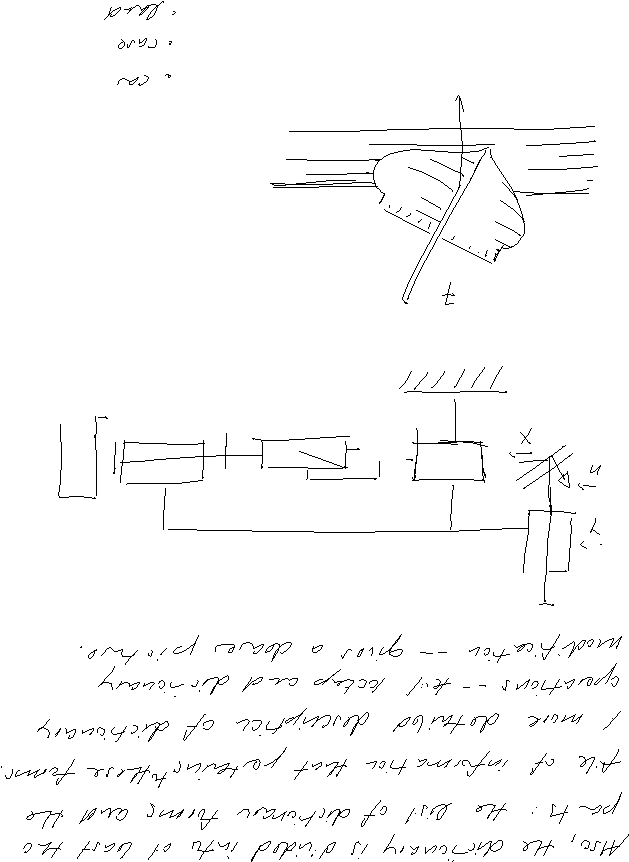 Also, the dictionary is divided into at least two
parts: the list of dictionary forms and the
file of information that pertains to these forms.
A more detailed description of dictionary
operations -- text lookup and dictionary
modification -- gives a clearer picture.
Y
n
X
• care